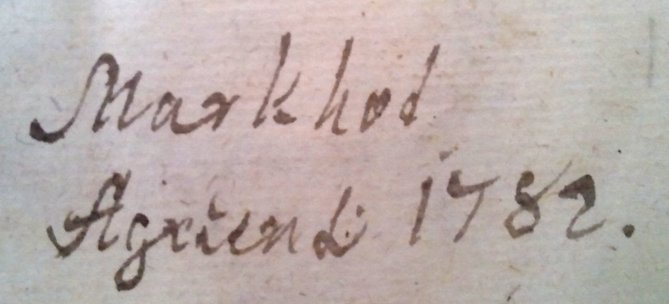 Markhod
Agriend: 1782.